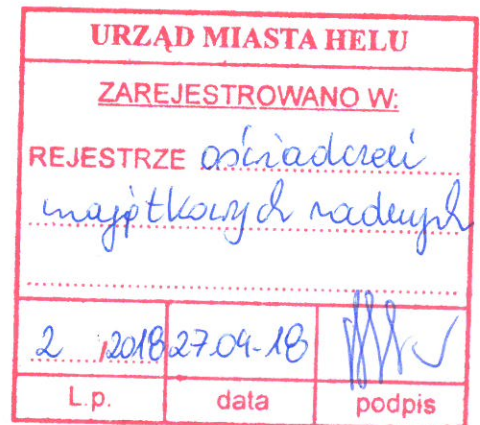 URZĄD MIASTA HELU
ZAREJESTROWANO W:
REJESTRZE oświadczeń
majątkowych radnych
2 2018 27.04-18
L.p. data podpis